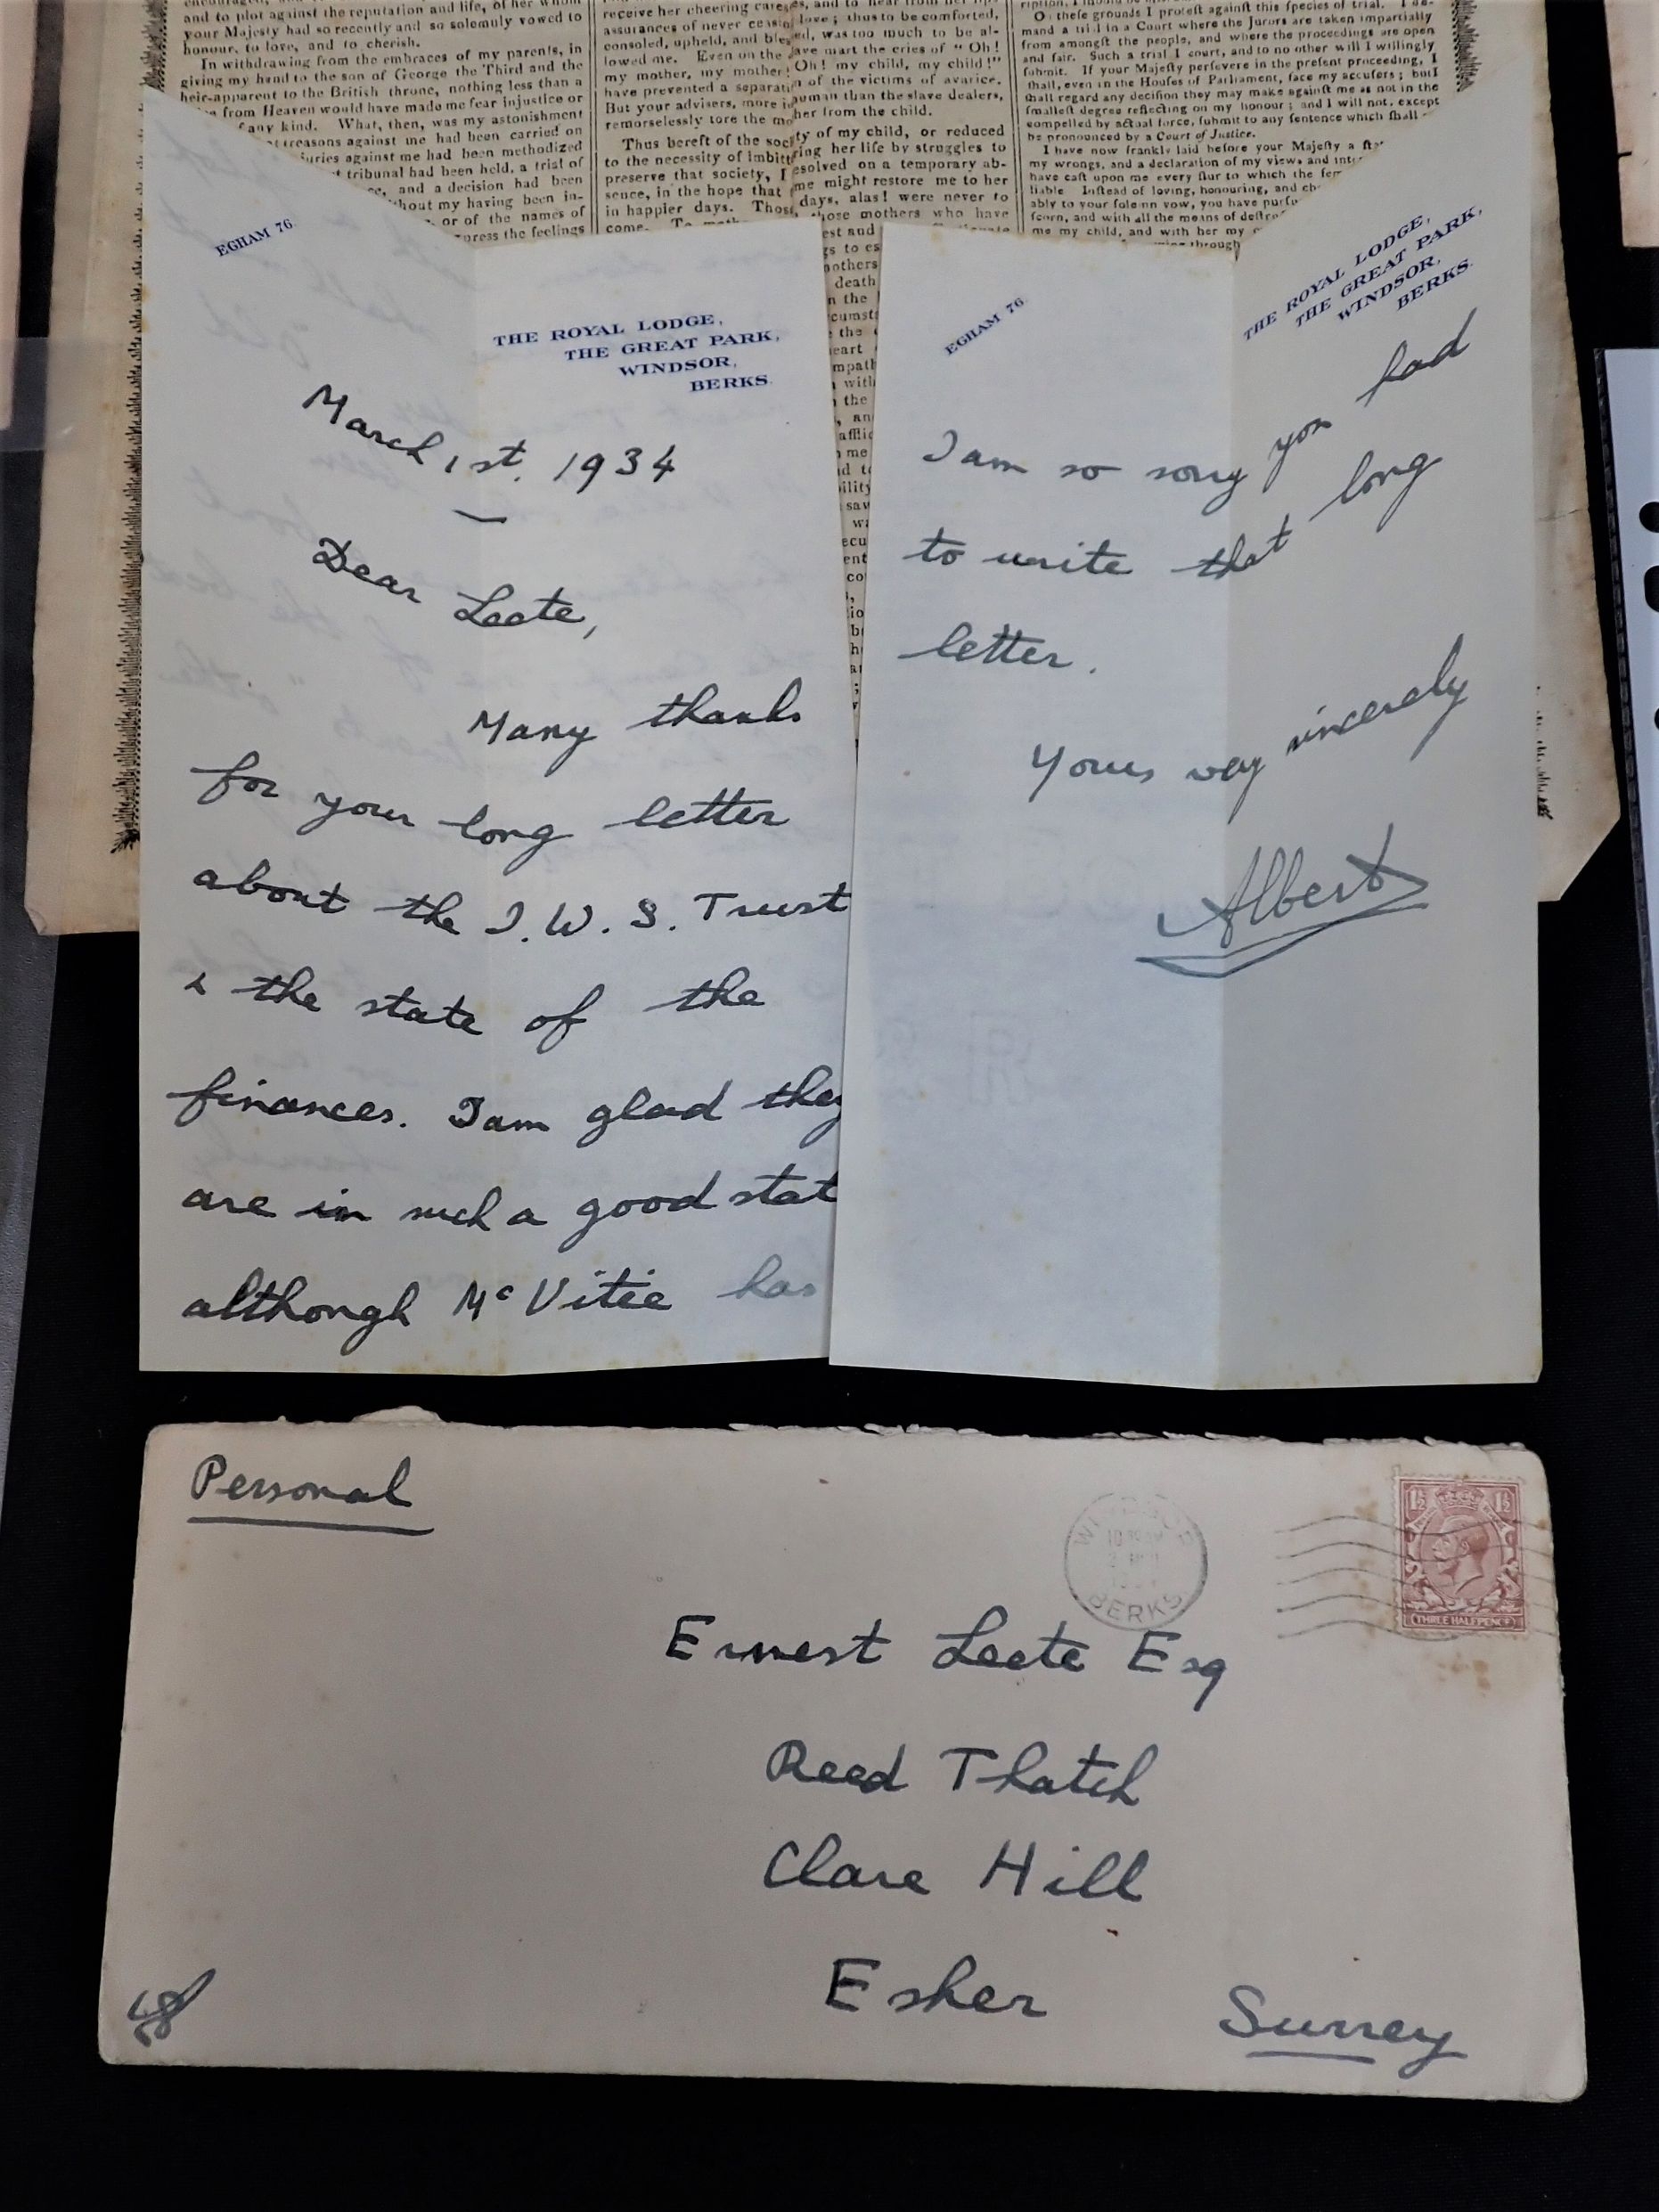 and to plot against the reputation and life, of her whom
your Majesty had so recently and so solemuly vowed to
honour, to love, and to cherish.
In withdrawing from the embraces of my parents, in
giving my hand to the son of George the Third and the
heir-apparent to the British throne, nothing less than a
from Heaven would have made me fear injustice or
any kind. What, then, was my astonishment
treasons against me had been carried on
against me had been methodized
tribunal had been held, a trial of
and a decision had been
my having been in-
or of the names of
the feelings
receive her cheering
assurances of never
consoled, upheld, and
lowed me. Even on the
my mother, my mother!
have prevented a
But your advisers, more
remorselessly tore the
Thus bereft of the
to the necessity of
preserve that society, I
sence, in the hope that
in happier days.
come.
love; thus to be comforted,
was too much to be al-
mart the cries of "Oh!
Oh! my child, my child!"
of the victims of avarice,
than the slave dealers,
from the child.
of my child, or reduced
her life by struggles to
on a temporary ab-
might restore me to her
days, alas! were never to
those mothers who have
O: these grounds I protest against this species of trial. I de-
mand a trial in a Court where the Jurors are taken impartially
from amongst the people, and where the proceedings are open
and fair. Such a trial I court, and to no other will I willingly
submit. If your Majesty persevere in the present proceeding, I
shall, even in the Houses of Parliament, face my accusers; but I
shall regard any decision they may make against me as not in the
smallest degree reflecting on my honour; and I will not, except
compelled by actual force, submit to any sentence which shall
be pronounced by a Court of Justice.
I have now frankly laid before your Majesty a
my wrongs, and a declaration of my views and
have cast upon me every slur to which the
liable. Instead of loving, honouring, and
ably to your solemn vow, you have
scorn, and with all the means of
me my child, and with her my
through
EGHAM 76.
THE ROYAL LODGE,
THE GREAT PARK,
WINDSOR,
BERKS.
March 1st. 1934
Dear Leete,
Many thanks
for your long letter
about the I.W.S. Trust
& the state of the
finances. I am glad they
are in such a good stat
although McVitie has
EGHAM 76.
THE ROYAL LODGE,
THE GREAT PARK,
WINDSOR,
BERKS.
I am so sorry you had
to write that long
letter.
Yours very sincerely
Albert
Personal
WINDSOR
BERKS
1½ 1½
THREE HALFPENCE
Ernest Leete Esq
Reed Thatch
Clare Hill
Esher Surrey